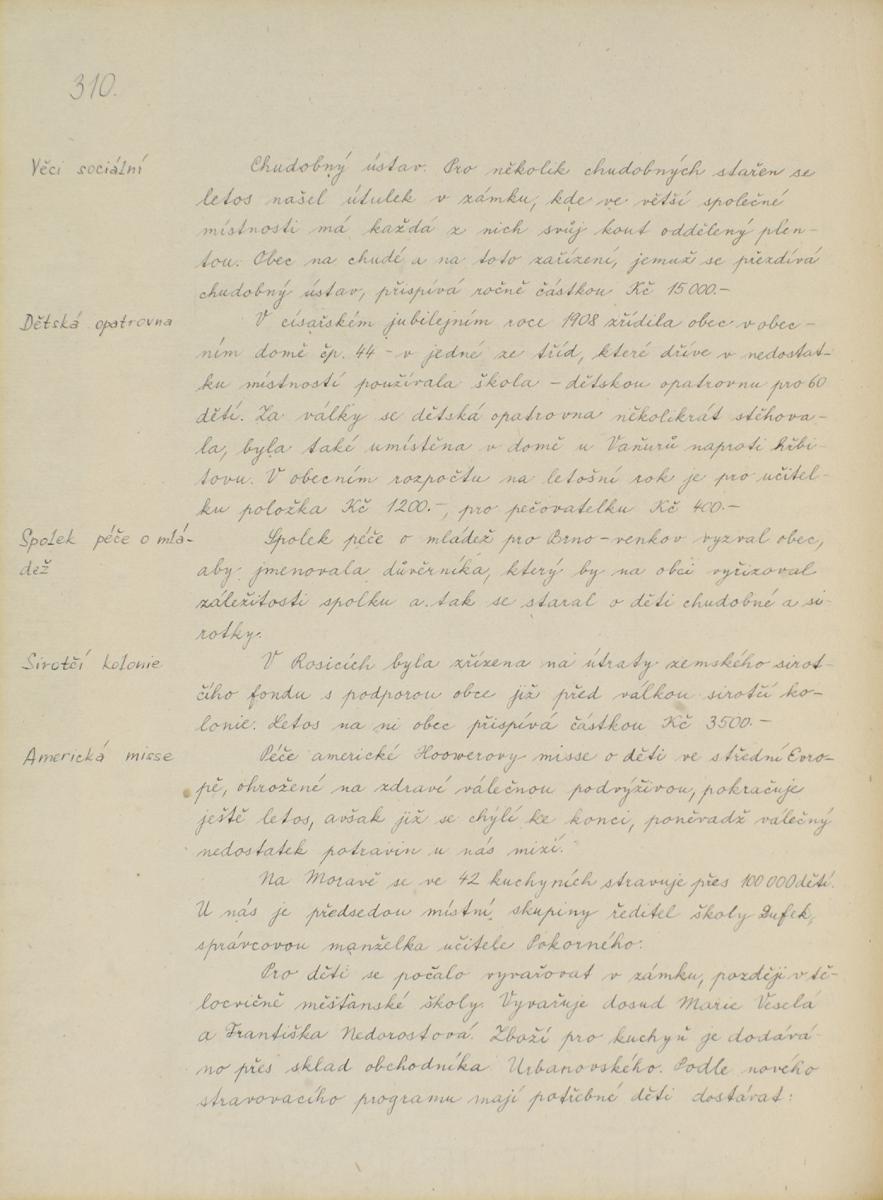 310.
Věci sociální
Chudobný ústav. Pro několik chudobných stařen se
letos našel útulek v zámku, kde ve větší společné
místnosti má každá z nich svůj kout oddělený plen-
tou. Obec na chudé a na toto zařízení, jemuž se přezdívá
chudobný ústav, přispívá ročně částkou Kč 15 000.-
Dětská opatrovna
V císařském jubilejním roce 1908 zřídila obec v obec-
ním domě čp. 44 - v jedné ze tříd, které dříve v nedostat-
ku místností používala škola - dětskou opatrovnu pro 60
dětí. Za války se dětská opatrovna několikrát stěhova-
la, byla také umístěna v domě u Vaňurů naproti hřbi-
tovu. V obecním rozpočtu na letošní rok je pro učitel-
ku položka Kč 1200.-, pro pečovatelku Kč 400.-
Spolek péče o mlá-
dež
Spolek péče o mládež pro Brno-venkov vyzval obec,
aby jmenovala důvěrníka, který by na obci vyřizoval
záležitosti spolku a tak se staral o děti chudobné a si-
rotky.
Sirotčí kolonie
V Rosicích byla zřízena na útraty zemského sirot-
čího fondu s podporou obce již před válkou sirotčí ko-
lonie. Letos na ni obec přispívá částkou Kč 3500.-
Americká misse
Péče americké Hoowerovy misse o děti ve střední Evro-
pě, ohrožené na zdraví válečnou podvýživou, pokračuje
ještě letos, avšak již se chýlí ke konci, poněvadž válečný
nedostatek potravin u nás mizí.
Na Moravě se ve 42 kuchyních stravuje přes 100 000 dětí.
U nás je předsedou místní skupiny ředitel školy Dufek,
správcovou manželka učitele Pokorného.
Pro děti se počalo vyvařovat v zámku, později v tě-
locvičně měšťanské školy. Vyvařuje dosud Marie Veselá
a Františka Nedorostová. Zboží pro kuchyň je dodává-
no přes sklad obchodníka Urbanovského. Podle nového
stravovacího programu mají potřebné děti dostávat: